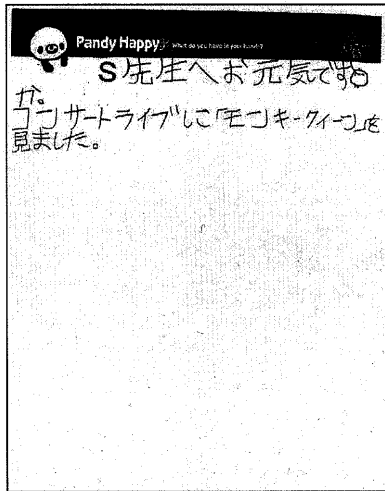 Pandy Happy What do you have in your hands?
S先生へお元気です
か。
コンサートライブしこ「モンキークィーン」を
見ました。